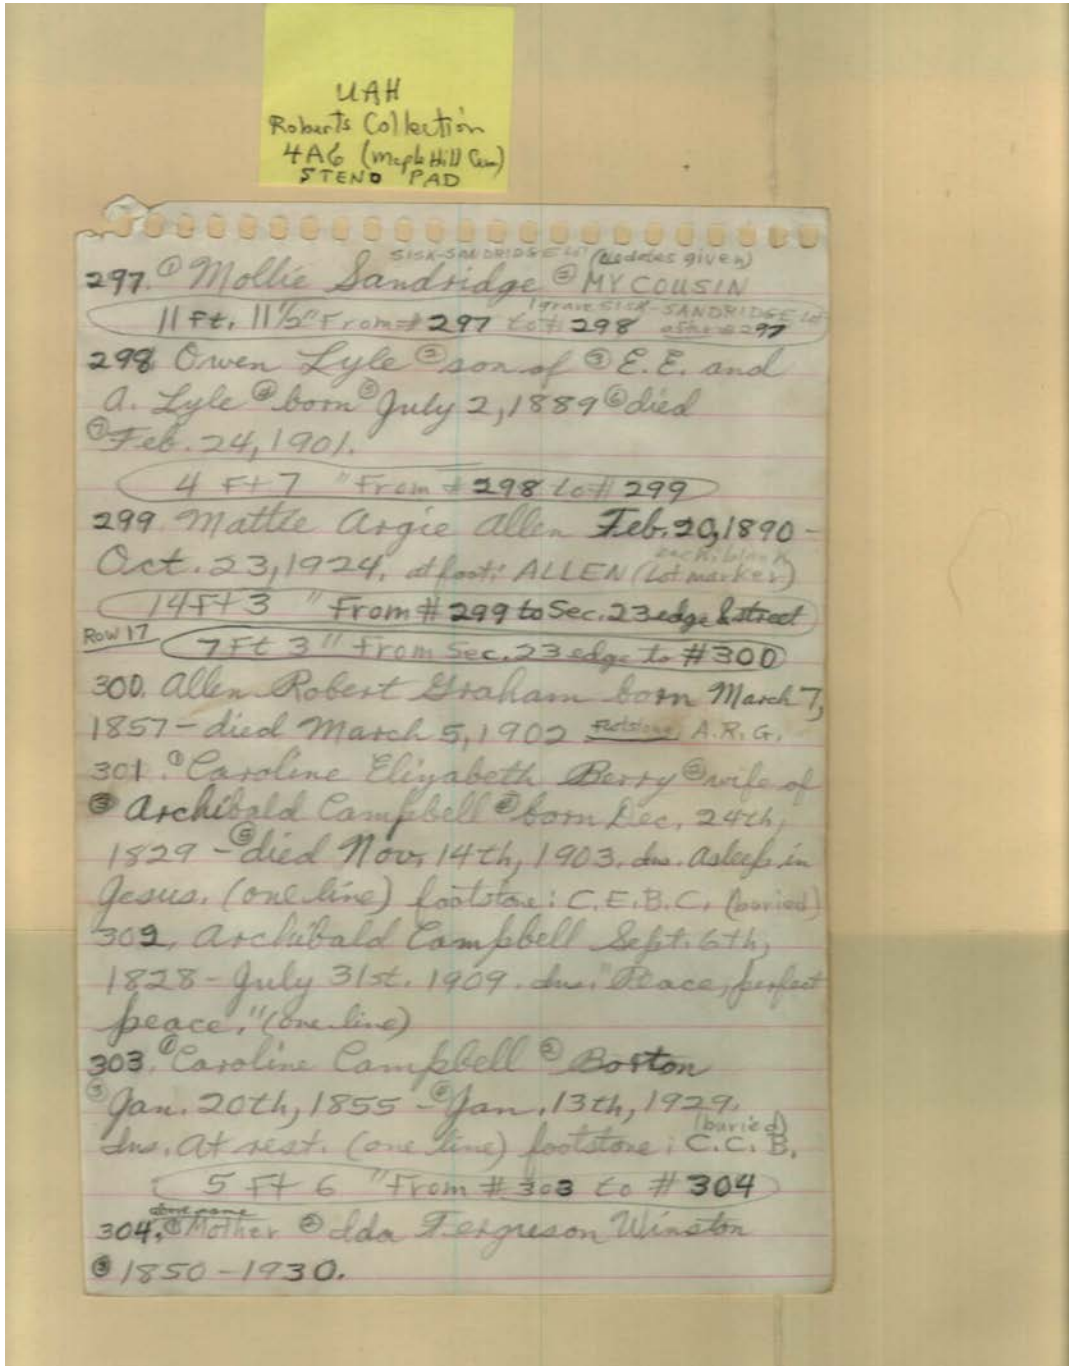 UAH
Roberts Collection
4A6 (Maple Hill Cem)
STENO PAD
SISK-SANDRIDGE Lot (No dates given)
297. ① Mollie Sandridge ② MY COUSIN
1 grave SISK-SANDRIDGE Lot
11 Ft. 11½" From # 297 to # 298 after # 297
298. Owen Lyle ② son of ③ E.E. and
A. Lyle ④ born ⑤ July 2, 1889 ⑥ died
⑦ Feb. 24, 1901.
4 Ft 7 " From # 298 to # 299
299. Mattie Argie Allen Feb. 20, 1890 -
Oct. 23, 1924. at foot: ALLEN (Lot marker)
back: blank
14 Ft 3 " From # 299 to Sec. 23 edge & street
Row 17
7 Ft 3 " From Sec. 23 edge to # 300
300. Allen Robert Graham born March 7,
1857 - died March 5, 1902 footstone A.R.G.
301. ① Caroline Elizabeth Berry ② wife of
③ Archibald Campbell ④ born Dec. 24th,
1829 - ⑤ died Nov. 14th, 1903. Ins. Asleep in
Jesus. (one line) footstone: C.E.B.C. (buried)
302. Archibald Campbell Sept. 6th,
1828 - July 31st. 1909. Ins. "Peace, perfect
peace." (one line)
303. ① Caroline Campbell ② Boston
③ Jan. 20th, 1855 - ④ Jan. 13th, 1929.
(buried)
Ins. At rest. (one line) footstone: C.C.B.
5 Ft 6 " From # 303 to # 304
304. ① Mother ② Ida Ferguson Winston
③ 1850 - 1930.